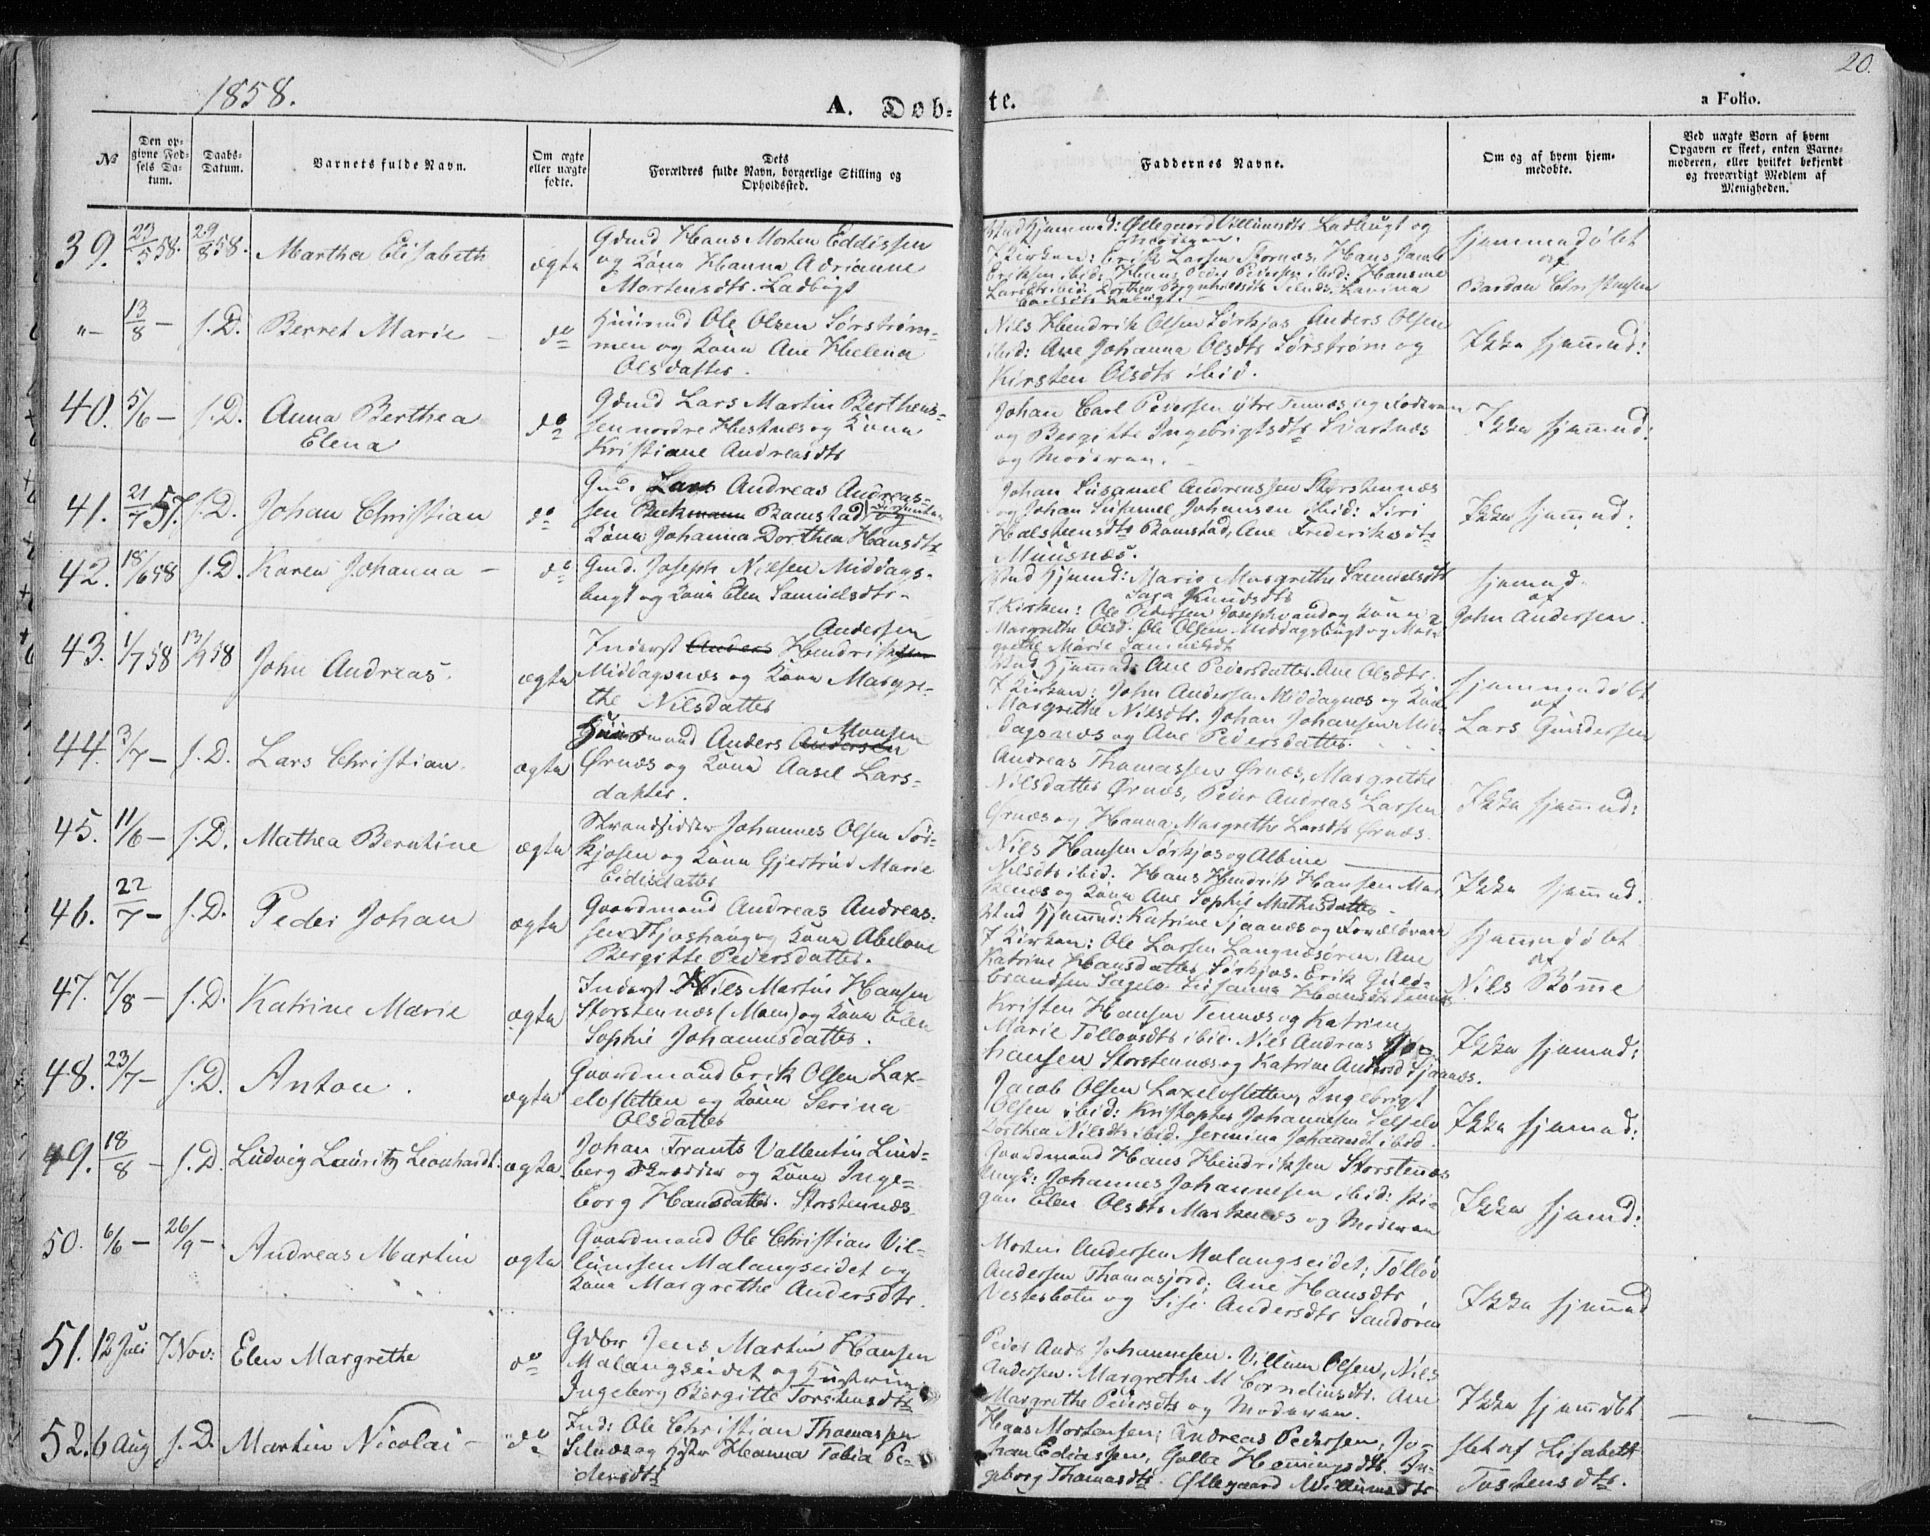 1858.
A. Døb-
te.
20.
a Folio.
No
Den op-
givne Fød-
sels Da-
tum.
Daabs-
Datum.
Barnets fulde Navn.
Om ægte
eller uægte
fødte.
Dets
Forældres fulde Navn, borgerlige Stilling og
Opholdssted.
Faddernes Navne.
Om og af hvem hjem-
medøbte.
Ved uægte Børn af hvem
Opgaven er skeet, enten Barne-
moderen, eller hvilket bekjendt
og troværdigt Medlem af
Menigheden.
39. 23/5 58. 29/8 58. Martha Elisabeth ægte
Gdmd Hans Morten Eddissen
og Kone Hanna Adrianne
Mortensdtr. Ladbugt
hjemmedøbt
af
Bardon Christensen
"- 13/8 - s.D. Berret Marie - do
Huusmd Ole Olsen Sørstrøm-
men og Kone Ane Helena
Olsdatter.
Nils Hendrik Olsen Sørkjos Anders Olsen
ibid: Ane Johanna Olsdtr Sørstrøm og
Kirsten Olsdtr ibid.
Ikke hjemmd:
40. 5/6 - s.D. Anna Berthea
Elena do
Gdmd Lars Martin Berthens-
sen nordre Hestnæs og Kone
Kristiane Andreasdtr
Johan Carl Pedersen ytre Tennæs og Faderen
og Bergitte Ingebrigtsdtr Svartnæs
og Moderen.
Ikke hjemmd:
41. 21/7 57. s.D. Johan Christian do
Gmd. Lars Andreas Andreas-
sen Beckmann Bomstad og
Kone Johanna Dorthea Hansdtr
Johan Andreassen Storstennæs
og Johan Johansen ibid: Siri
Halstensdtr Bomstad, Ane Frederiksdtr
Muusnæs.
Ikke hjemmd:
42. 18/6 58 s.D. Karen Johanna - do
Gmd. Joseph Nilsen Middags-
bugt og Kone Elen Samuelsdtr.
Ved Hjemmd: Marie Margrethe Samuelsdtr
Sara Knudsdtr
hjemmd.
af
John Andersen.
43. 1/7 58 13/9 58 John Andreas. ægte
Andersen
Inderst Anders Hendriksen
Middagsnæs og Kone Margre-
the Nilsdatter
Ved Hjemmd: Ane Pedersdatter. Ane Olsdtr.
I Kirken: John Andersen Middagnæs og Kone
Margrethe Nilsdtr. Johan Johansen Mid-
dagsnæs og Ane Pedersdatter.
hjemmedøbt
af
Lars Gundersen
44. 3/7 - s.D. Lars Christian. ægte
Monsen
Huusmand Anders Andersen
Ørnæs og Kone Aasel Lars-
datter.
Andreas Thomassen Ørnæs, Margrethe
Nilsdatter Ørnæs, Peder Andreas Larsen
Ørnæs og Hanna Margrethe Larsdtr Ørnæs.
Ikke hjemmd:
45. 11/6 - s.D. Mathea Berntine ægte
Strandsidder Johannes Olsen Sør-
kjosen og Kone Gjertrud Marie
Eidisdatter
Nils Hansen Sørkjos og Albine
Nilsdtr ibid. Hans Hendrik Hansen Mar-
kenæs og Kone Ane Sophie Mathisdatter.
Ikke hjemmd.
46. 22/7 - s.D. Peder Johan ægte
Gaardmand Andreas Andreas-
sen og Kone Abelone
Bergitte Pedersdatter.
I Kirken: Ole Larsen Langnæsøren. Ane
Katrine Hansdatter Sørkjos. Erik Guld-
brandsen Sagelv. Susanna Hansdtr Tennæs
hjemmdøbt
af
Nils Bømme
47. 7/8 - s.D. Katrine Marie ægte
Inderst Nils Martin Hansen
Storstennæs (Moen) og Kone Elen
Sophie Johannesdatter.
Kristen Hansen Tennæs og Katrine
Marie Tollevsdtr ibid. Nils Andreas Jo-
hansen Storstennæs og Katrine Andersd Sjaanæs.
Ikke hjemmd:
48. 23/7 - s.D. Anton. ægte
Gaardmand Erik Olsen Lax-
elvsletten og Kone Serina
Olsdatter
Jacob Olsen Laxelvsletten, Ingebrigt
Olsen ibid: Kristopher Johannesen Selfelv
Dorthea Nilsdtr ibid. Jermina Johannsdt ibid.
Ikke hjemmd:
49. 18/8 - s.D. Ludvig Lauritz Leonhardt. ægte.
Johan Frants Vallentin Lind-
berg Skrædder og Kone Inge-
borg Hansdatter. Storstennæs.
Gaardmand Hans Hendriksen Storstenæs
Ungk: Johannes Johannesen ibid: Pi-
gen Elen Olsdtr Markenæs og Moderen
Ikke hjemmd:
50. 6/6 - 26/9 - Andreas Martin ægte
Gaardmand Ole Christian Vil-
lumsen Malangseidet og
Kone Margrethe Andersdtr.
Morten Andersen Malangseidet; Tølløv
Andersen Thomasjord; Ane Hansdtr
Vesterbotn og Sise Andersdtr Sandøren
Ikke hjemmd
51. 12 Juli 7 Nov: Elen Margrethe do
Gdbr Jens Martin Hansen
Malangseidet og Hustru
Ingeborg Bergitte Torstensdtr
Peder Ands Johannesen. Villum Olsen, Nils
Andersen. Margrethe M Corneliusdtr. Ane
Margrethe Pedersdtr og Moderen.
Ikke hjemmdøbt
52. 6 Aug s.D. Martin Nicolai - do
Ind: Ole Christian Thomassen
Selnæs og Hstr Hanna Tobia Pe-
dersdtr
Hans Mortensen; Andreas Pedersen, Jo-
han Ediassen, Golla Hemingsdtr. In-
geborg Thomasdtr. Øllegaard Willumsdtr
slet af Lisabeth
Tostensdtr.